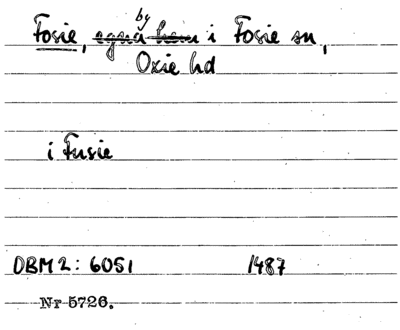 by
Fosie, egna hem i Fosie sn,
Oxie hd
i Fusie
DBM 2: 6051 1487
Nr 5726.